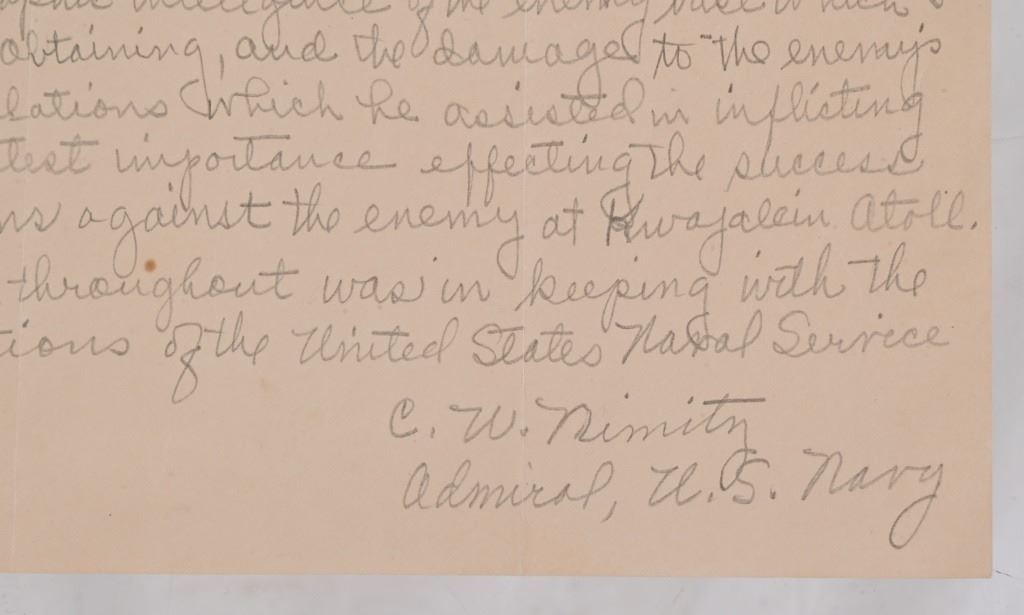 intelligence of the enemy base which
obtaining, and the damage to the enemy's
lations which he assisted in inflicting
test importance effecting the success
ns against the enemy at Kwajalein Atoll.
throughout was in keeping with the
tions of the United States Naval Service
C. W. Nimitz
Admiral, U.S. Navy